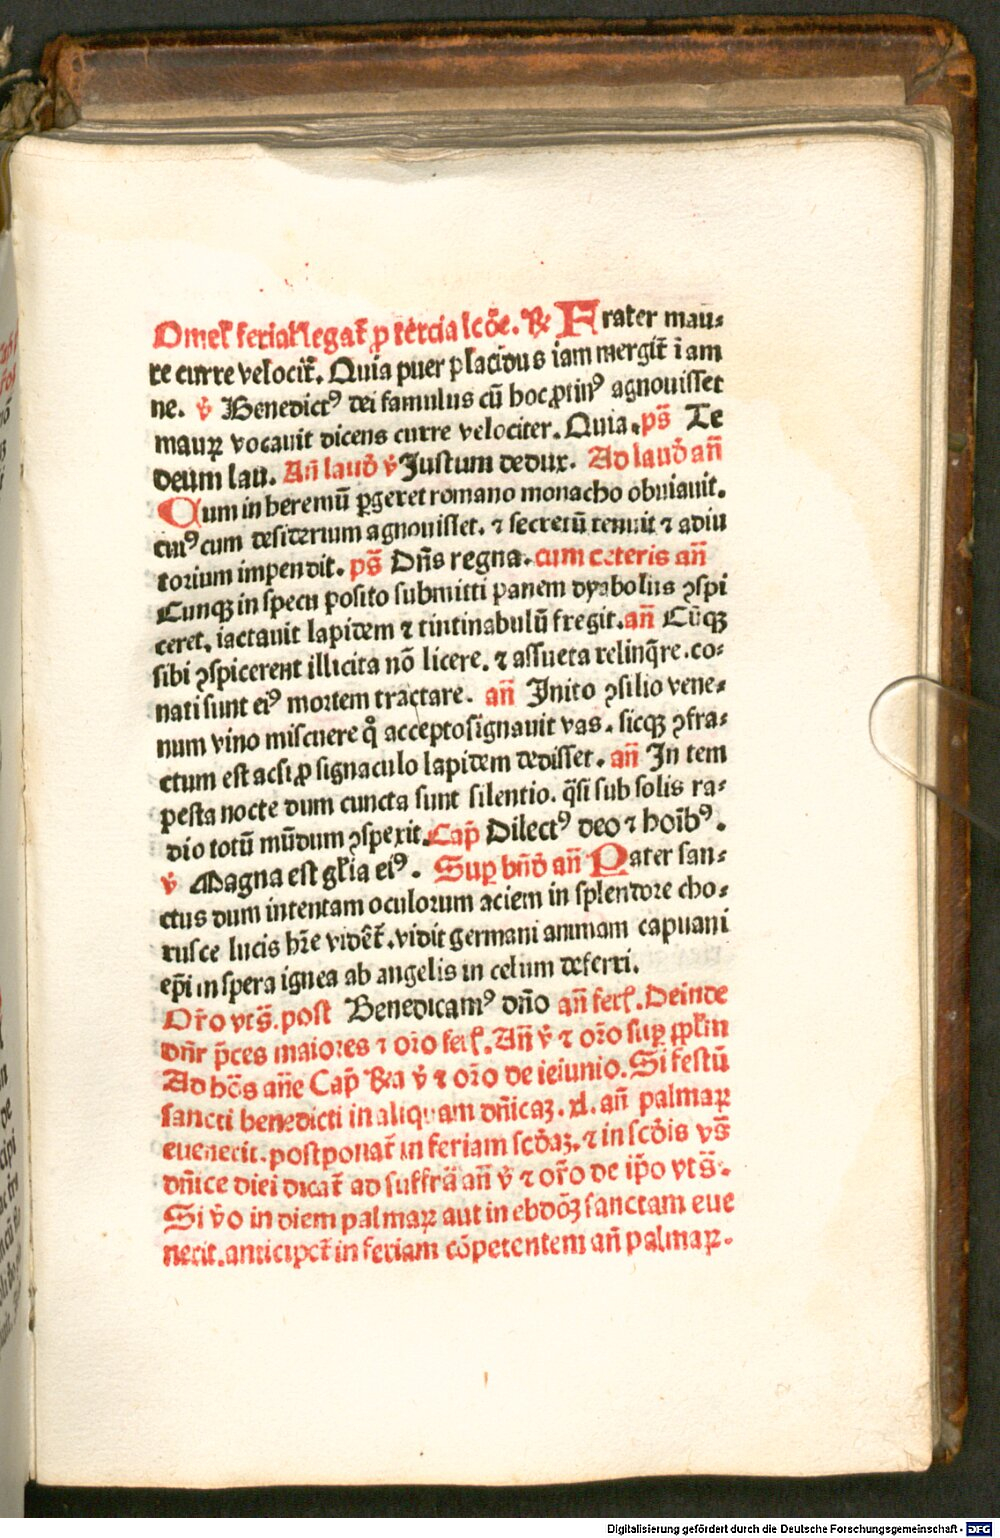 Omel̄ feriał legat̄ ꝓ tercia lcōe. ℟ Frater mau⸗
re curre velocit̄. Quia puer placidus iam mergit̄ ī am
ne. ℣ Benedictꝰ dei famulus cū hoc ꝓtinꝰ agnouisset
mauꝝ vocauit dicens curre velociter. Quia. ps̄ Te
deum lau. Añ laud̄ ℣ Justum dedux. Ad laud̄ añ
Cum in heremū ꝑgeret romano monacho obuiauit.
cuiꝰ cum desiderium agnouisset. ⁊ secretū tenuit ⁊ adiu
torium impendit. ps̄ Dn̄s regna. cum ceteris añ
Cunqꝫ in specu posito submitti panem dyabolus ꝯspi
ceret. iactauit lapidem ⁊ tintinabulū fregit. añ Cūqꝫ
sibi ꝯspicerent illicita nō licere. ⁊ assueta relinq̄re. co⸗
nati sunt eiꝰ mortem tractare. añ Inito ꝯsilio vene⸗
num vino miscuere qͦ accepto signauit vas. sicqꝫ ꝯfra⸗
ctum est acsi ꝓ signaculo lapidem dedisset. añ In tem
pesta nocte dum cuncta sunt silentio. q̄si sub solis ra⸗
dio totū mūdum ꝯspexit. Cap̄ Dilectꝰ deo ⁊ hoībꝰ.
℣ Magna est gl̄ia eiꝰ. Suꝑ bn̄d̄ añ Pater san⸗
ctus dum intentam oculorum aciem in splendore cho⸗
rusce lucis hr̄e vidēt̄. vidit germani animam capuani
ep̄i in spera ignea ab angelis in celum deferri.
Or̄o vts̄. post Benedicamꝰ dn̄o añ ferł. Deinde
dn̄r p̄ces maiores ⁊ oro ferł. Añ ℣ ⁊ or̄o suꝑ pp̄lm
Ad ho̅s añe Cap̄ ℟a ℣ ⁊ or̄o de ieiunio. Si festū
sancti benedicti in aliquam dn̄icaꝫ. xl. añ palmaꝝ
euenerit. postponat̄ in feriam scd̄aꝫ. ⁊ in scd̄is vs̄
dn̄ice diei dicat̄ ad suffrā añ ℣ ⁊ or̄o de ip̄o vts̄.
Si v̄o in diem palmaꝝ aut in ebdōꝫ sanctam eue
nerit. anticipet̄ in feriam cōpetentem añ palmaꝝ.
Digitalisierung gefördert durch die Deutsche Forschungsgemeinschaft - DFG